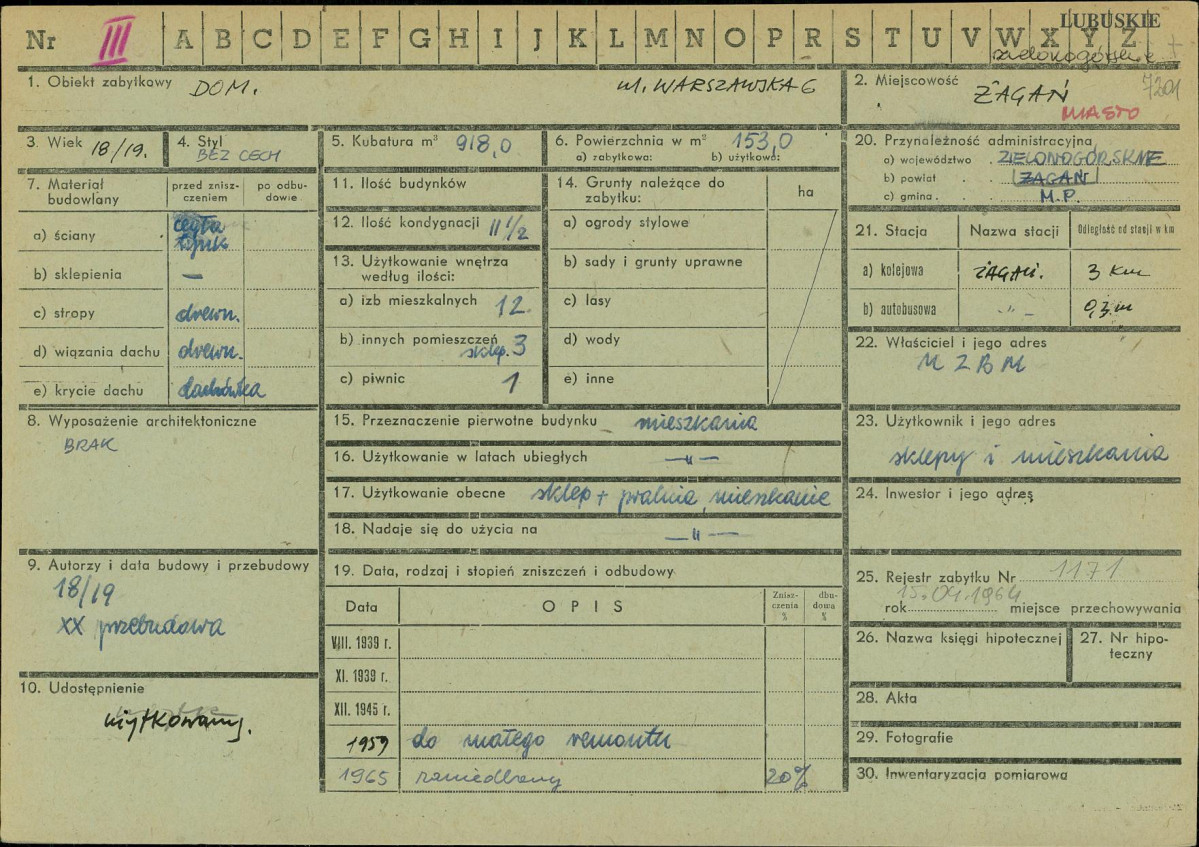 Nr III A B C D E F G H I J K L M N O P R S T U V W X Y Z
LUBUSKIE
zielonogórskie
7201
1. Obiekt zabytkowy DOM. ul. WARSZAWSKA 6
2. Miejscowość ŻAGAŃ
MIASTO
3. Wiek 18/19.
4. Styl
BEZ CECH
5. Kubatura m³ 918,0
6. Powierzchnia w m² 153,0
a) zabytkowa: b) użytkowa:
20. Przynależność administracyjna
a) województwo ZIELONOGÓRSKIE
b) powiat ŻAGAŃ
c) gmina M.P.
7. Materiał budowlany
przed zniszczeniem
po odbudowie
a) ściany cegła
tynk
b) sklepienia —
c) stropy drewn.
d) wiązania dachu drewn.
e) krycie dachu dachówka
11. Ilość budynków
12. Ilość kondygnacji II 1/2
13. Użytkowanie wnętrza
według ilości:
a) izb mieszkalnych 12.
b) innych pomieszczeń
sklep. 3
c) piwnic 1
14. Grunty należące do
zabytku:
ha
a) ogrody stylowe
b) sady i grunty uprawne
c) lasy
d) wody
e) inne
21. Stacja Nazwa stacji Odległość od stacji w km
a) kolejowa ŻAGAŃ. 3 km
b) autobusowa -„- 0,3
22. Właściciel i jego adres
MZBM
8. Wyposażenie architektoniczne
BRAK
15. Przeznaczenie pierwotne budynku mieszkania
16. Użytkowanie w latach ubiegłych —„—
17. Użytkowanie obecne sklep + pralnia, mieszkanie
18. Nadaje się do użycia na —„—
23. Użytkownik i jego adres
sklepy i mieszkania
24. Inwestor i jego adres
9. Autorzy i data budowy i przebudowy
18/19
XX przebudowa
10. Udostępnienie
użytkowany.
19. Data, rodzaj i stopień zniszczeń i odbudowy
Data OPIS Zniszczenia % dbudowa %
VIII. 1939 r.
XI. 1939 r.
XII. 1945 r.
1959 do małego remontu
1965 zaniedbany 20%
25. Rejestr zabytku Nr 1171
15.04.1964
rok miejsce przechowywania
26. Nazwa księgi hipotecznej
27. Nr hipoteczny
28. Akta
29. Fotografie
30. Inwentaryzacja pomiarowa